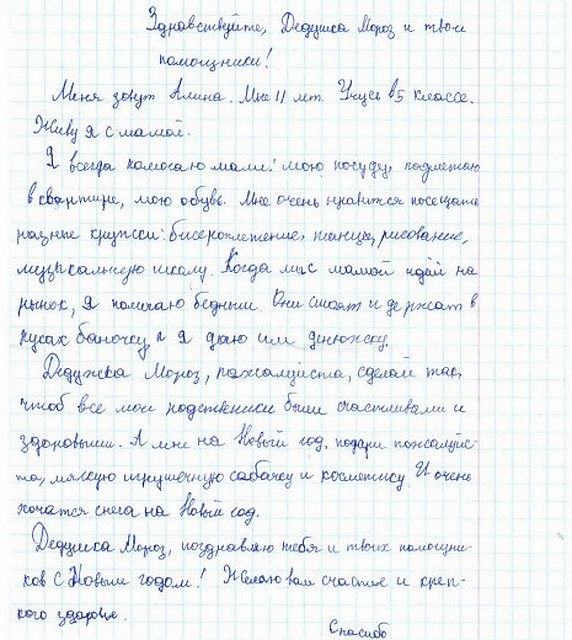 Здравствуйте, Дедушка Мороз и твои
помощники!
Меня зовут Алина. Мне 11 лет. Учусь в 5 классе.
Живу я с мамой.
Я всегда помогаю маме: мою посуду, подметаю
в квартире, мою обувь. Мне очень нравится посещать
разные кружки: бисероплетение, танцы, рисование,
музыкальную школу. Когда мы с мамой идём на
рынок, я помогаю бедным. Они стоят и держат в
руках баночку, и я даю им денюжку.
Дедужка Мороз, пожалуйста, сделай так,
чтоб все мои родственики были счастливами и
здоровыми. А мне на Новый год, подари пожалуйс-
та, мягкую игрушечную сабачку и косметику. И очень
хочатся снега на Новый год.
Дедушка Мороз, поздравляю тебя и твоих помощни-
ков с Новым годом! Желаю вам счастье и креп-
кого здоровье.
Спасибо